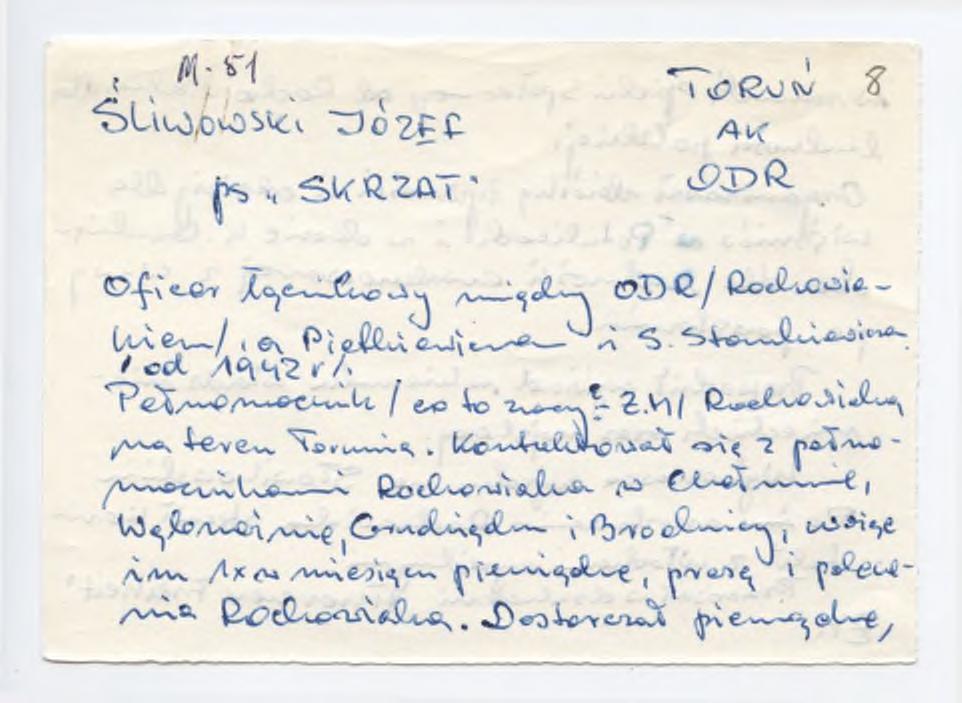 M-51
TORUŃ 8
Śliwowski JÓZEF
AK
ps „SKRZAT"
ODR
Oficer łącznikowy między ODR/Rochowia-
kiem/, a Pietkiewiczem i S. Stankiewicza
/od 1942 r/.
Pełnomocnik /co to znaczy? Z.M/ Rochowiaka
na teren Torunia. Kontaktował się z pełno-
mocnikami Rochowiaka w Chełmnie,
Wąbrzeźnie, Grudziądzu i Brodnicy, wożąc
im 1x w miesiącu pieniądze, prasę i polece-
nia Rochowiaka. Dostarczał pieniądze,